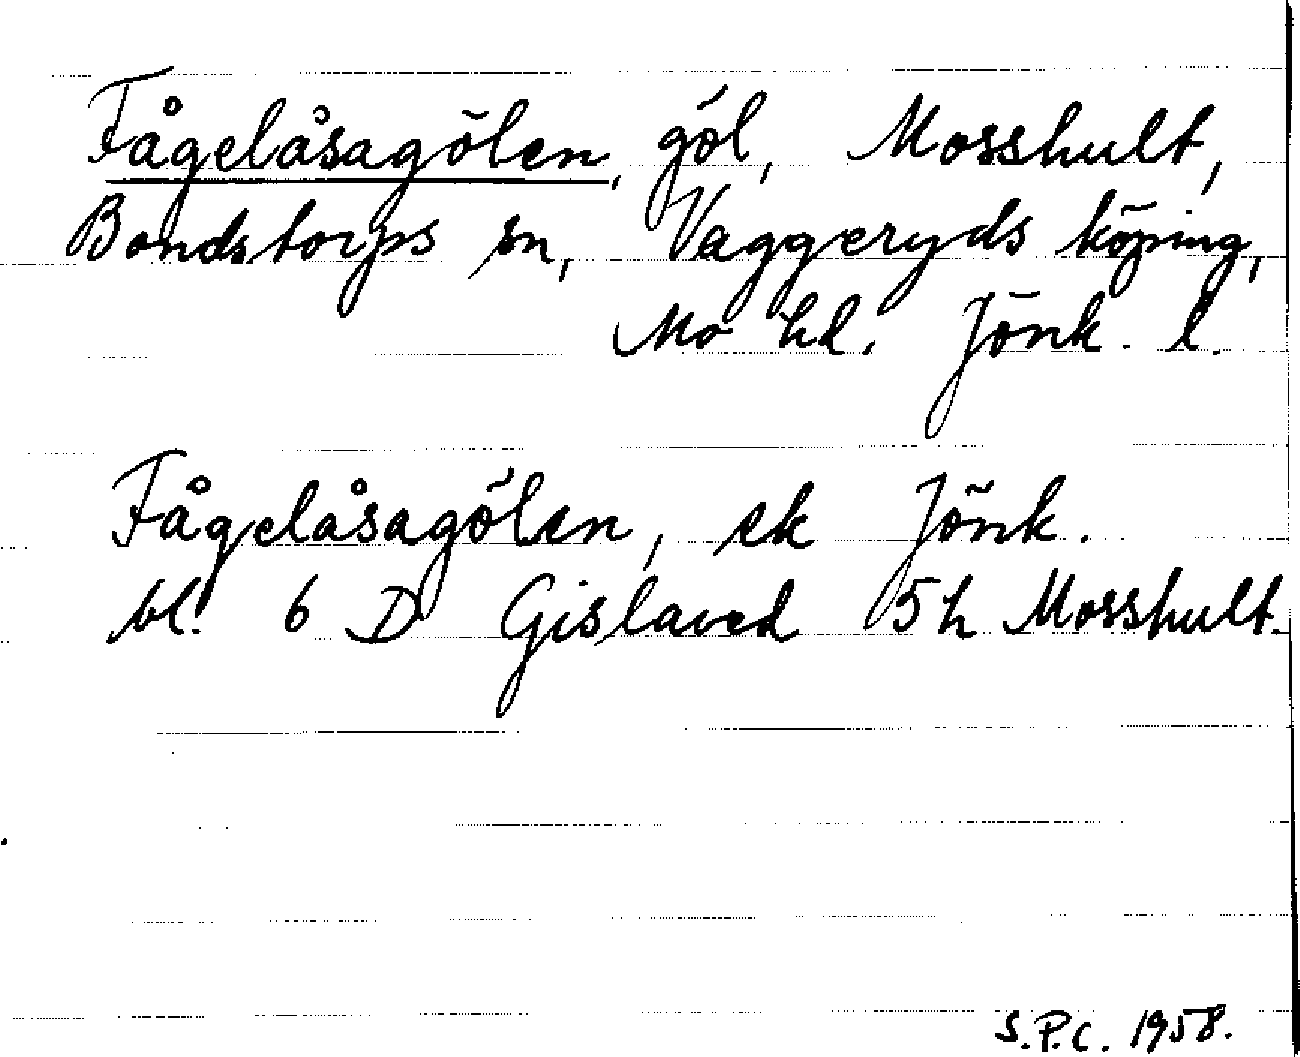 Fågelåsagölen, göl, Mosshult,
Bondstorps sn, Vaggeryds köping,
Mo hd. Jönk. l.
Fågelåsagölen, ek Jönk.
bl. 6 D Gislaved 5h Mosshult.
S.P.C. 1958.